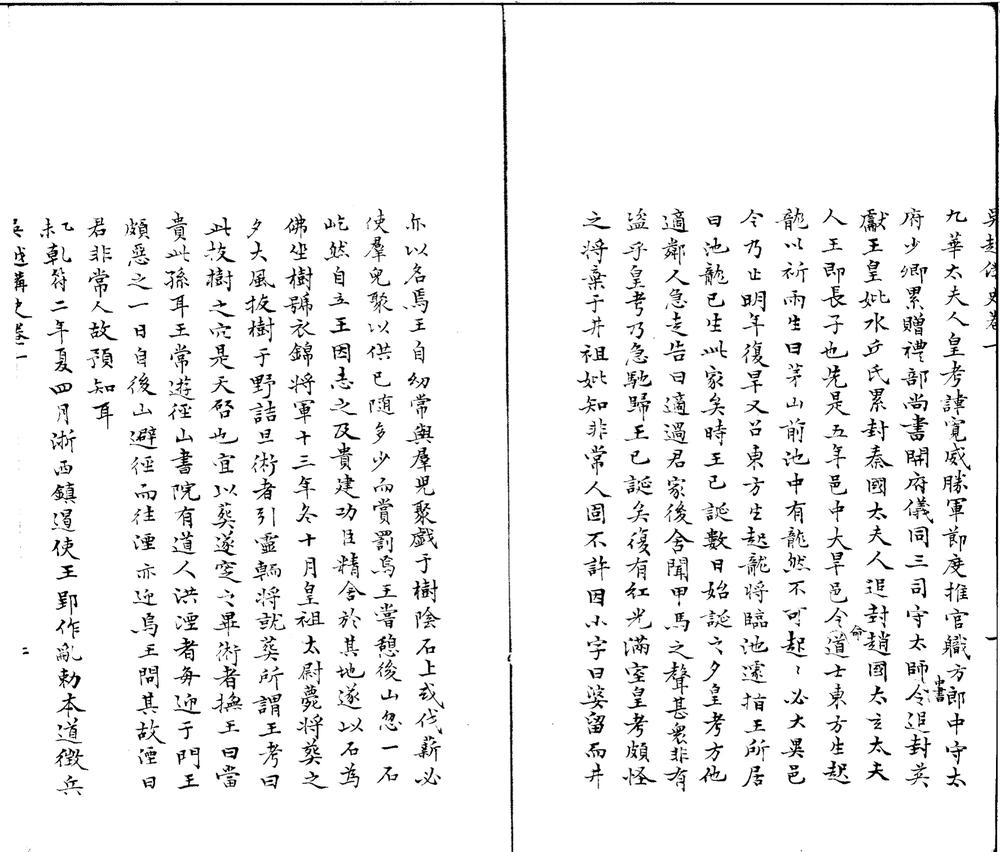 吳越備史卷一
九華太夫人皇考諱寛威勝軍節度推官職方郎中守太
府少卿累贈禮部尚書開府儀同三司守太師中書令追封英
獻王皇妣水丘氏累封秦國太夫人追封趙國太元太夫
人王即長子也先是五年邑中大旱邑令命道士東方生起
龍以祈雨生曰茅山前池中有龍然不可起〻必大異邑
令乃止明年復旱又召東方生起龍將臨池遽指王所居
曰池龍已生此家矣時王已誕數日始誕之夕皇考方他
適鄰人急走告曰適過君家後舍聞甲馬之聲甚衆非有
盜乎皇考乃急馳歸王已誕矣復有紅光滿室皇考頗怪
之將棄于井祖妣知非常人固不許因小字曰婆留而井
一
亦以名焉王自幼常與羣兒聚戯于樹陰石上或伐薪必
使羣兒聚以供已随多少而賞罰焉王嘗憩後山忽一石
屹然自立王因志之及貴建功臣精舍於其地遂以石為
佛坐樹號衣錦將軍十三年冬十月皇祖太尉薨將葬之
夕大風拔樹于野詰旦術者引靈輀將就葬所謂王考曰
此拔樹之穴是天啓也宜以葬遂窆之畢術者撫王曰當
貴此孫耳王常遊徑山書院有道人洪湮者每迎于門王
頗惡之一日自後山避徑而往湮亦迎焉王問其故湮曰
君非常人故預知耳
乙未乾符二年夏四月浙西鎮遏使王郢作亂勅本道徴兵
吳越備史卷一
二